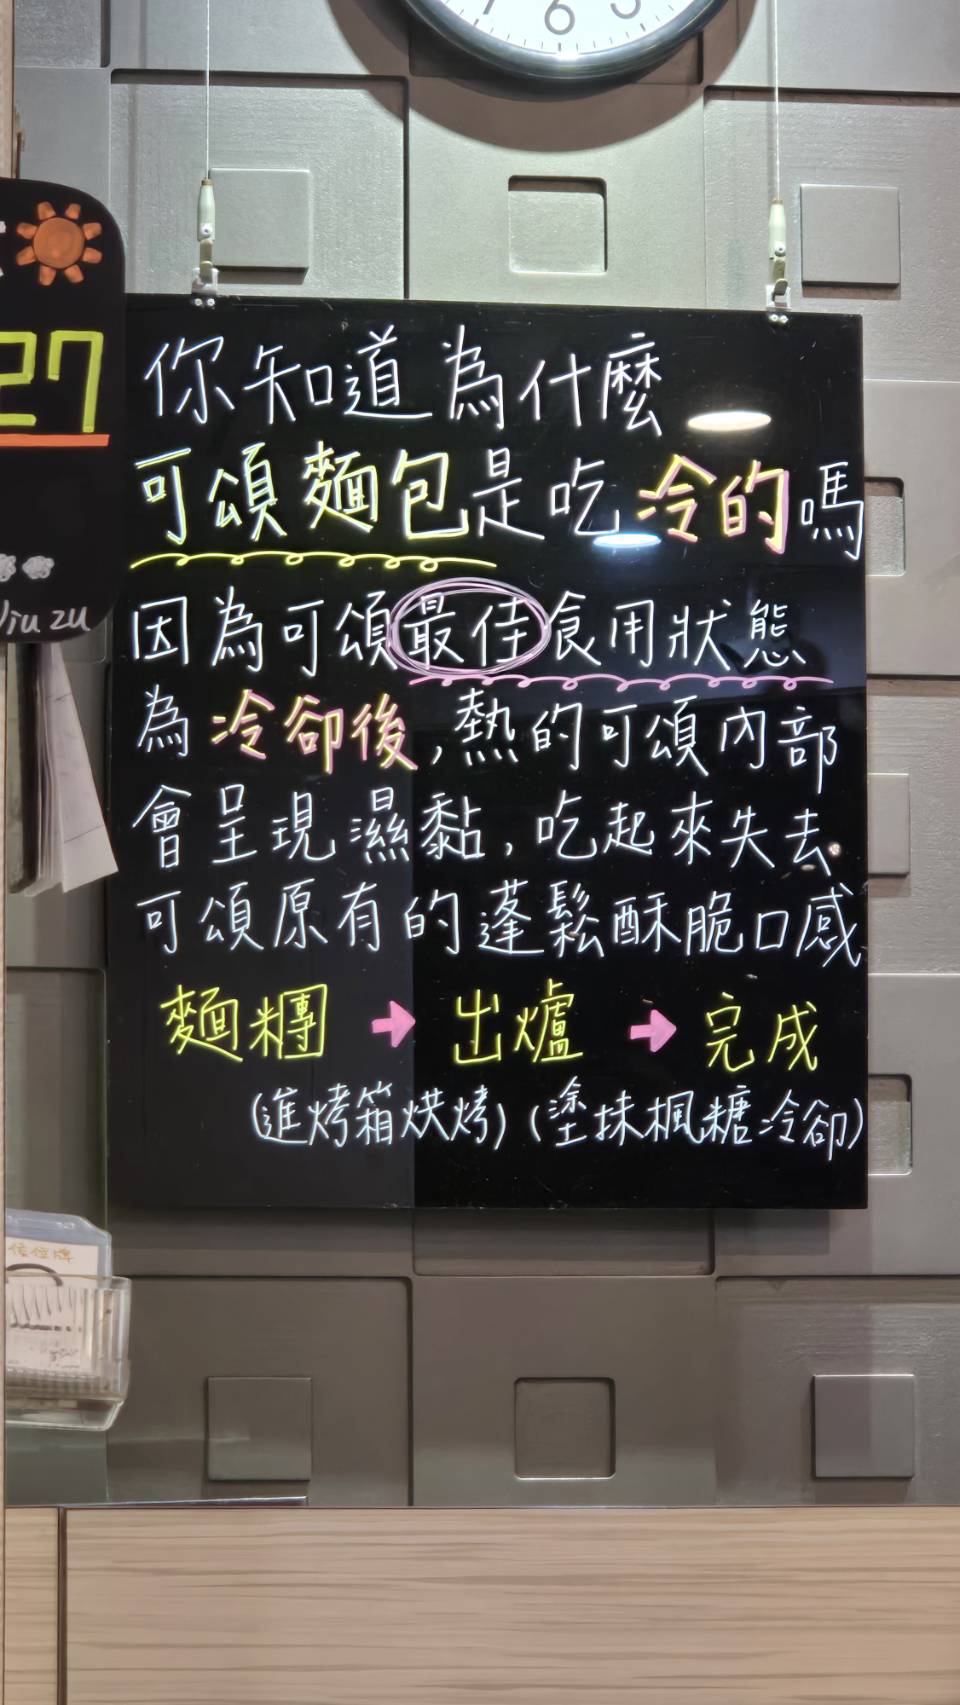 7 6 5
27
你知道為什麼
可頌麵包是吃冷的嗎
因為可頌最佳食用狀態
為冷卻後,熱的可頌內部
會呈現濕黏,吃起來失去
可頌原有的蓬鬆酥脆口感
麵糰 → 出爐 → 完成
(進烤箱烘烤) (塗抹楓糖冷卻)